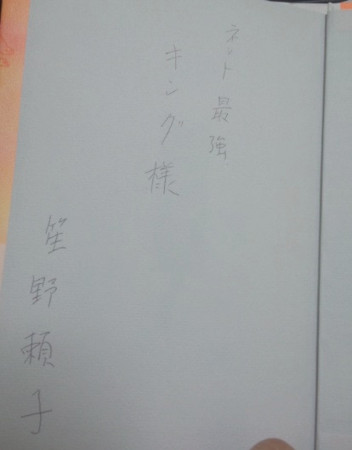 ネット最強
キング様
笙野頼子